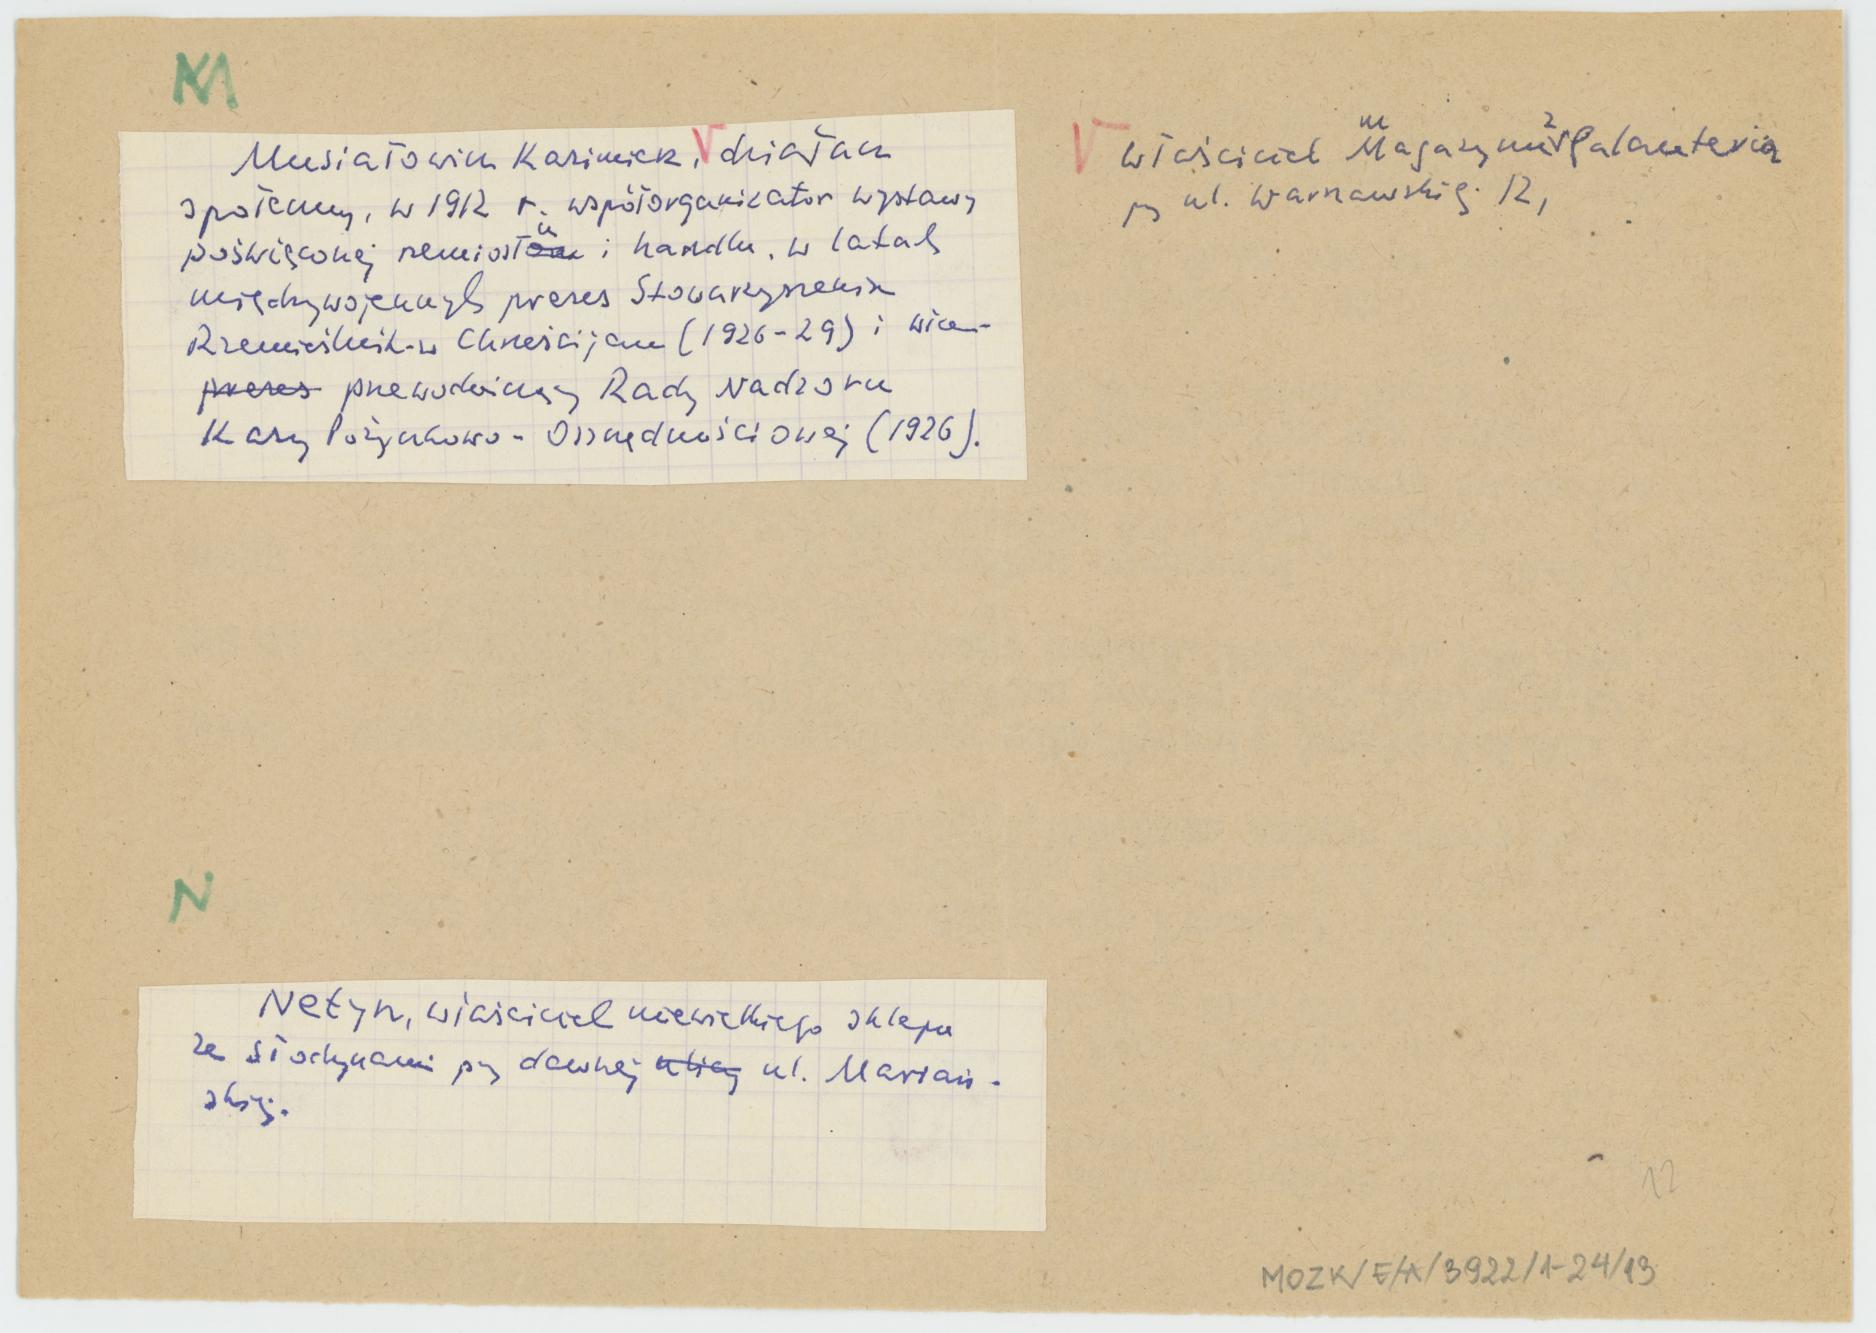 M
Musiałowicz Kazimierz, √ działacz
społeczny, w 1912 r. współorganizator wystawy
poświęconej rzemiosłu i handlu. w latach
międzywojennych prezes Stowarzyszenia
Rzemieślników Chrześcijan (1926-29) i wice-
prezes przewodniczący Rady Nadzoru
Kasy Pożyczkowo-Oszczędnościowej (1926).
√ właściciel magazynu z galanterią
przy ul. Warszawskiej 12,
N
Netzyn, właściciel niewielkiego sklepu
ze słodyczami przy dawnej ulicy ul. Mariań-
skiej.
12
MOZK/E/A/3922/1-24/13